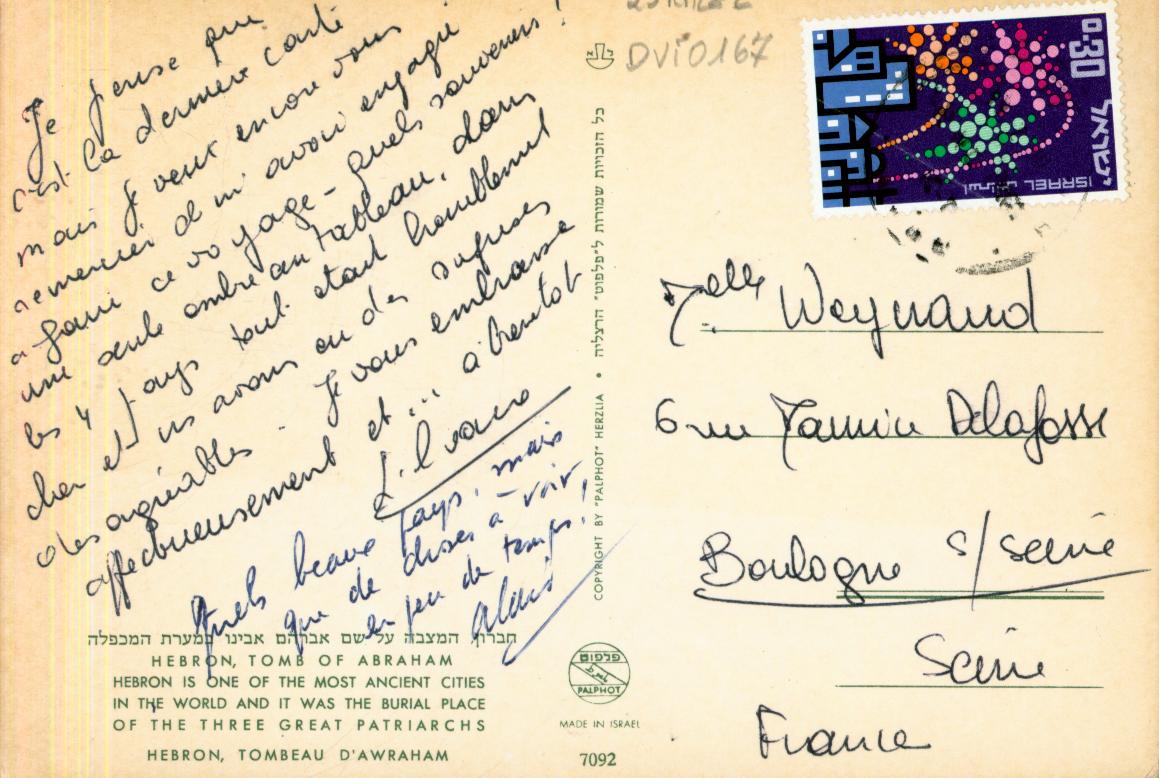 Je pense que
c'est la dernière carte
mais je veux encore vous
remercier de m'avoir engagée
à faire ce voyage - quels souvenirs !
une seule ombre au tableau, dans
les 4 pays tout était horriblement
cher et ns avons eu des
des agréables. Je vous embrasse
affectueusement et ... à bientôt
Quels beaux pays, mais
que de choses à voir,
en peu de temps!
Alain
חברון, המצבה על שם אברהם אבינו במערת המכפלה
HEBRON, TOMB OF ABRAHAM
HEBRON IS ONE OF THE MOST ANCIENT CITIES
IN THE WORLD AND IT WAS THE BURIAL PLACE
OF THE THREE GREAT PATRIARCHS
HEBRON, TOMBEAU D'AWRAHAM
כל הזכויות שמורות ל"פלפוט" הרצליה • COPYRIGHT BY "PALPHOT" HERZLIA
פלפוט
PALPHOT
MADE IN ISRAEL
7092
DVI0167
0.30
ישראל
اسرائيل ISRAEL
Melle Weynand
6 rue Delafosse
Boulogne s/seine
Seine
France